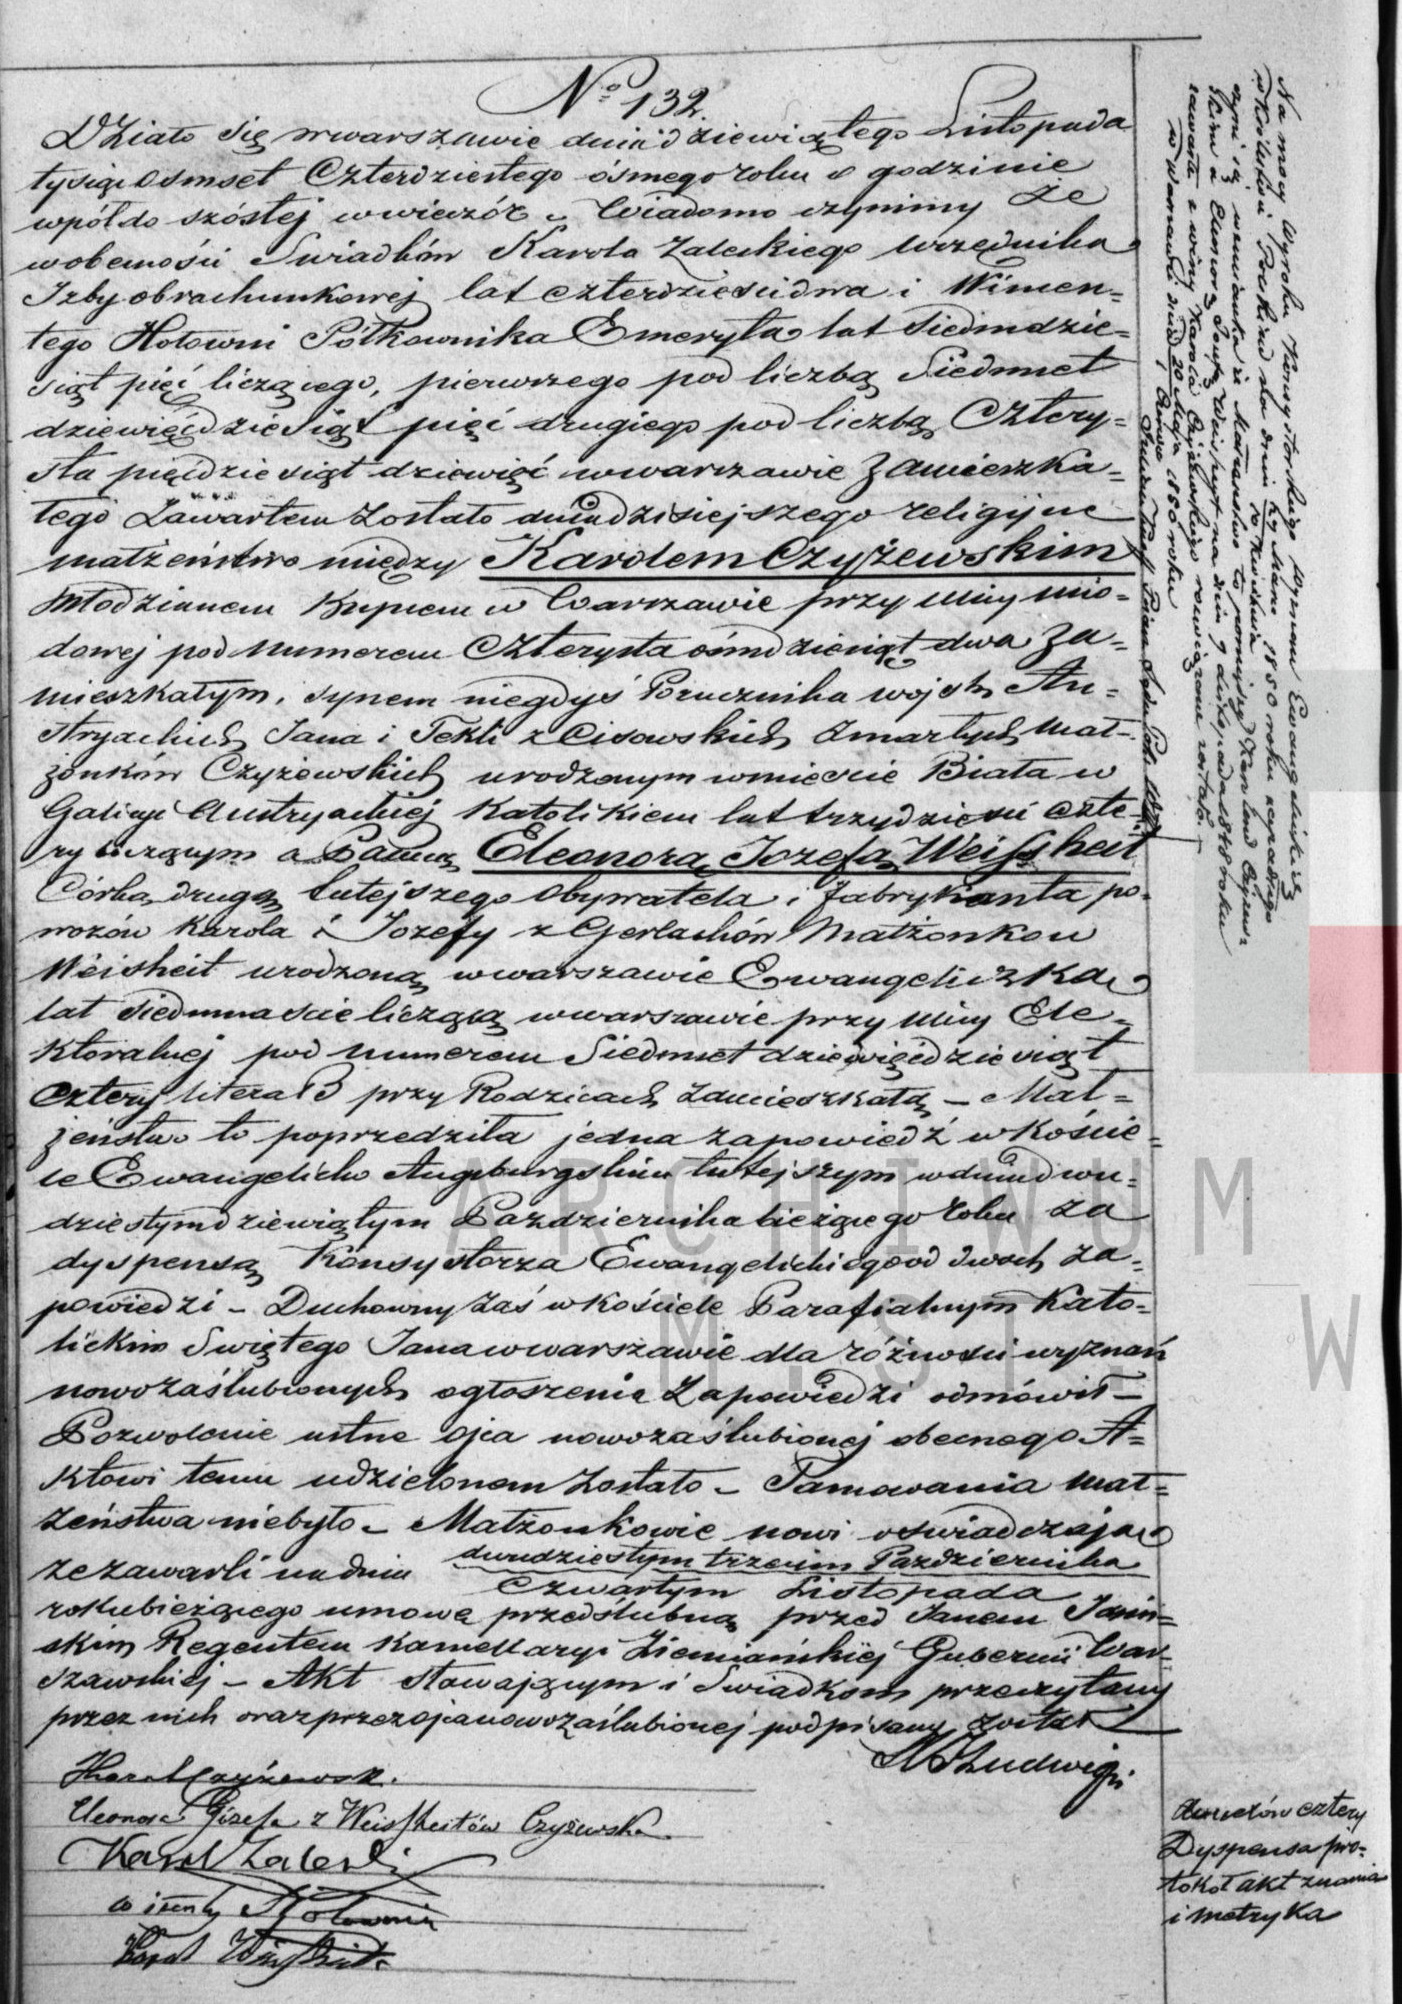 No 132
Działo się w Warszawie dnia dziewiątego Listopada
tysiąc Osmset Czterdziestego ósmego roku o godzinie
wpół do szóstej w wieczór. Wiadomo czynimy że
w obecności Świadków Karola Zaleskiego Urzędnika
Izby obrachunkowej lat czterdzieści dwa i Wincen=
tego Hołowni Półkownika Emeryta lat Siedmdzie=
siąt pięć liczącego, pierwszego pod liczbą Siedmset
dziewięćdziesiąt pięć drugiego pod liczbą Cztery=
sta pięćdziesiąt dziewięć w Warszawie Zamieszka=
łego Zawartem Zostało dnia dzisiejszego religijne
małżeństwo między Karolem Czyżewskim
Młodzianem Kupcem w Warszawie przy ulicy Mio=
dowej pod Numerem Czterysta ośmdziesiąt dwa Za=
mieszkałym, synem niegdyś Porucznika wojsk Au=
stryackich Jana i Tekli z Cisowskich Zmarłych Mał=
żonków Czyżewskich urodzonym w mieście Biała w
Galicyi Austryackiej Katolikiem lat trzydzieści czte=
ry liczącym a Panną Eleonorą Jozefą Weissheit
Córką drugą tutejszego Obywatela i Fabrykanta po=
wozów Karola i Jozefy z Gerlachów Małżonkow
Weisheit urodzoną w Warszawie Ewangeliczką
lat siedmnaście liczącą w Warszawie przy ulicy Ele=
ktoralnej pod Numerem Siedmset dziewięćdziesiąt
cztery litera B przy Rodzicach Zamieszkałą – Mał=
żeństwo to poprzedziła jedna zapowiedź w Koście=
le Ewangelicko Augsburgskim tutejszym w dniu dwu=
dziestym dziewiątym Października bieżącego roku za
dyspensą Konsystorza Ewangelickiego od dwoch Za=
powiedzi – Duchowny zaś w kościele Parafialnym Kato=
lickim Świętego Jana w Warszawie dla różności wyznań
nowozaślubionych ogłoszenia Zapowiedzi odmówił –
Pozwolenie ustne ojca nowozaślubionej obecnego A=
ktowi temu udzielonem Zostało – Tamowania Mał=
żeństwa niebyło – Małżonkowie nowi oświadczają
że zawarli na dniu dwudziestym trzecim Października
czwartym Listopada
roku bieżącego umowę przedślubną przed Janem Jasiń=
skim Regentem Kancellaryi Ziemiańskiej Gubernii War=
szawskiej – Akt stawającym i Świadkom przeczytany
przez nich oraz przez ojca nowozaślubionej podpisany został
Karol Czyżewski.
Eleonora Józefa z Weissheitów Czyżewska
Karol Zaleski
Wincenty Hołownia
Karol Weissheit
Na mocy Wyroku Konsystorskiego wyznań Ewangelickich
w Królestwie Polskiem dnia 29 Marca 1850 roku
czyni się wzmianka iż Małżeństwo to pomiędzy Karolem Czyżew=
skim a Eleonorą Jozefą Weissheit na dniu 9 Listopada 1848 roku
zawarte z winy Karola Czyżewskiego rozwiązane zostało. –
w Warszawie dnia 20 Maja 1850 roku
dowodów cztery
Dyspensa pro=
tokół akt znania
i metryka
ARCHIWUM